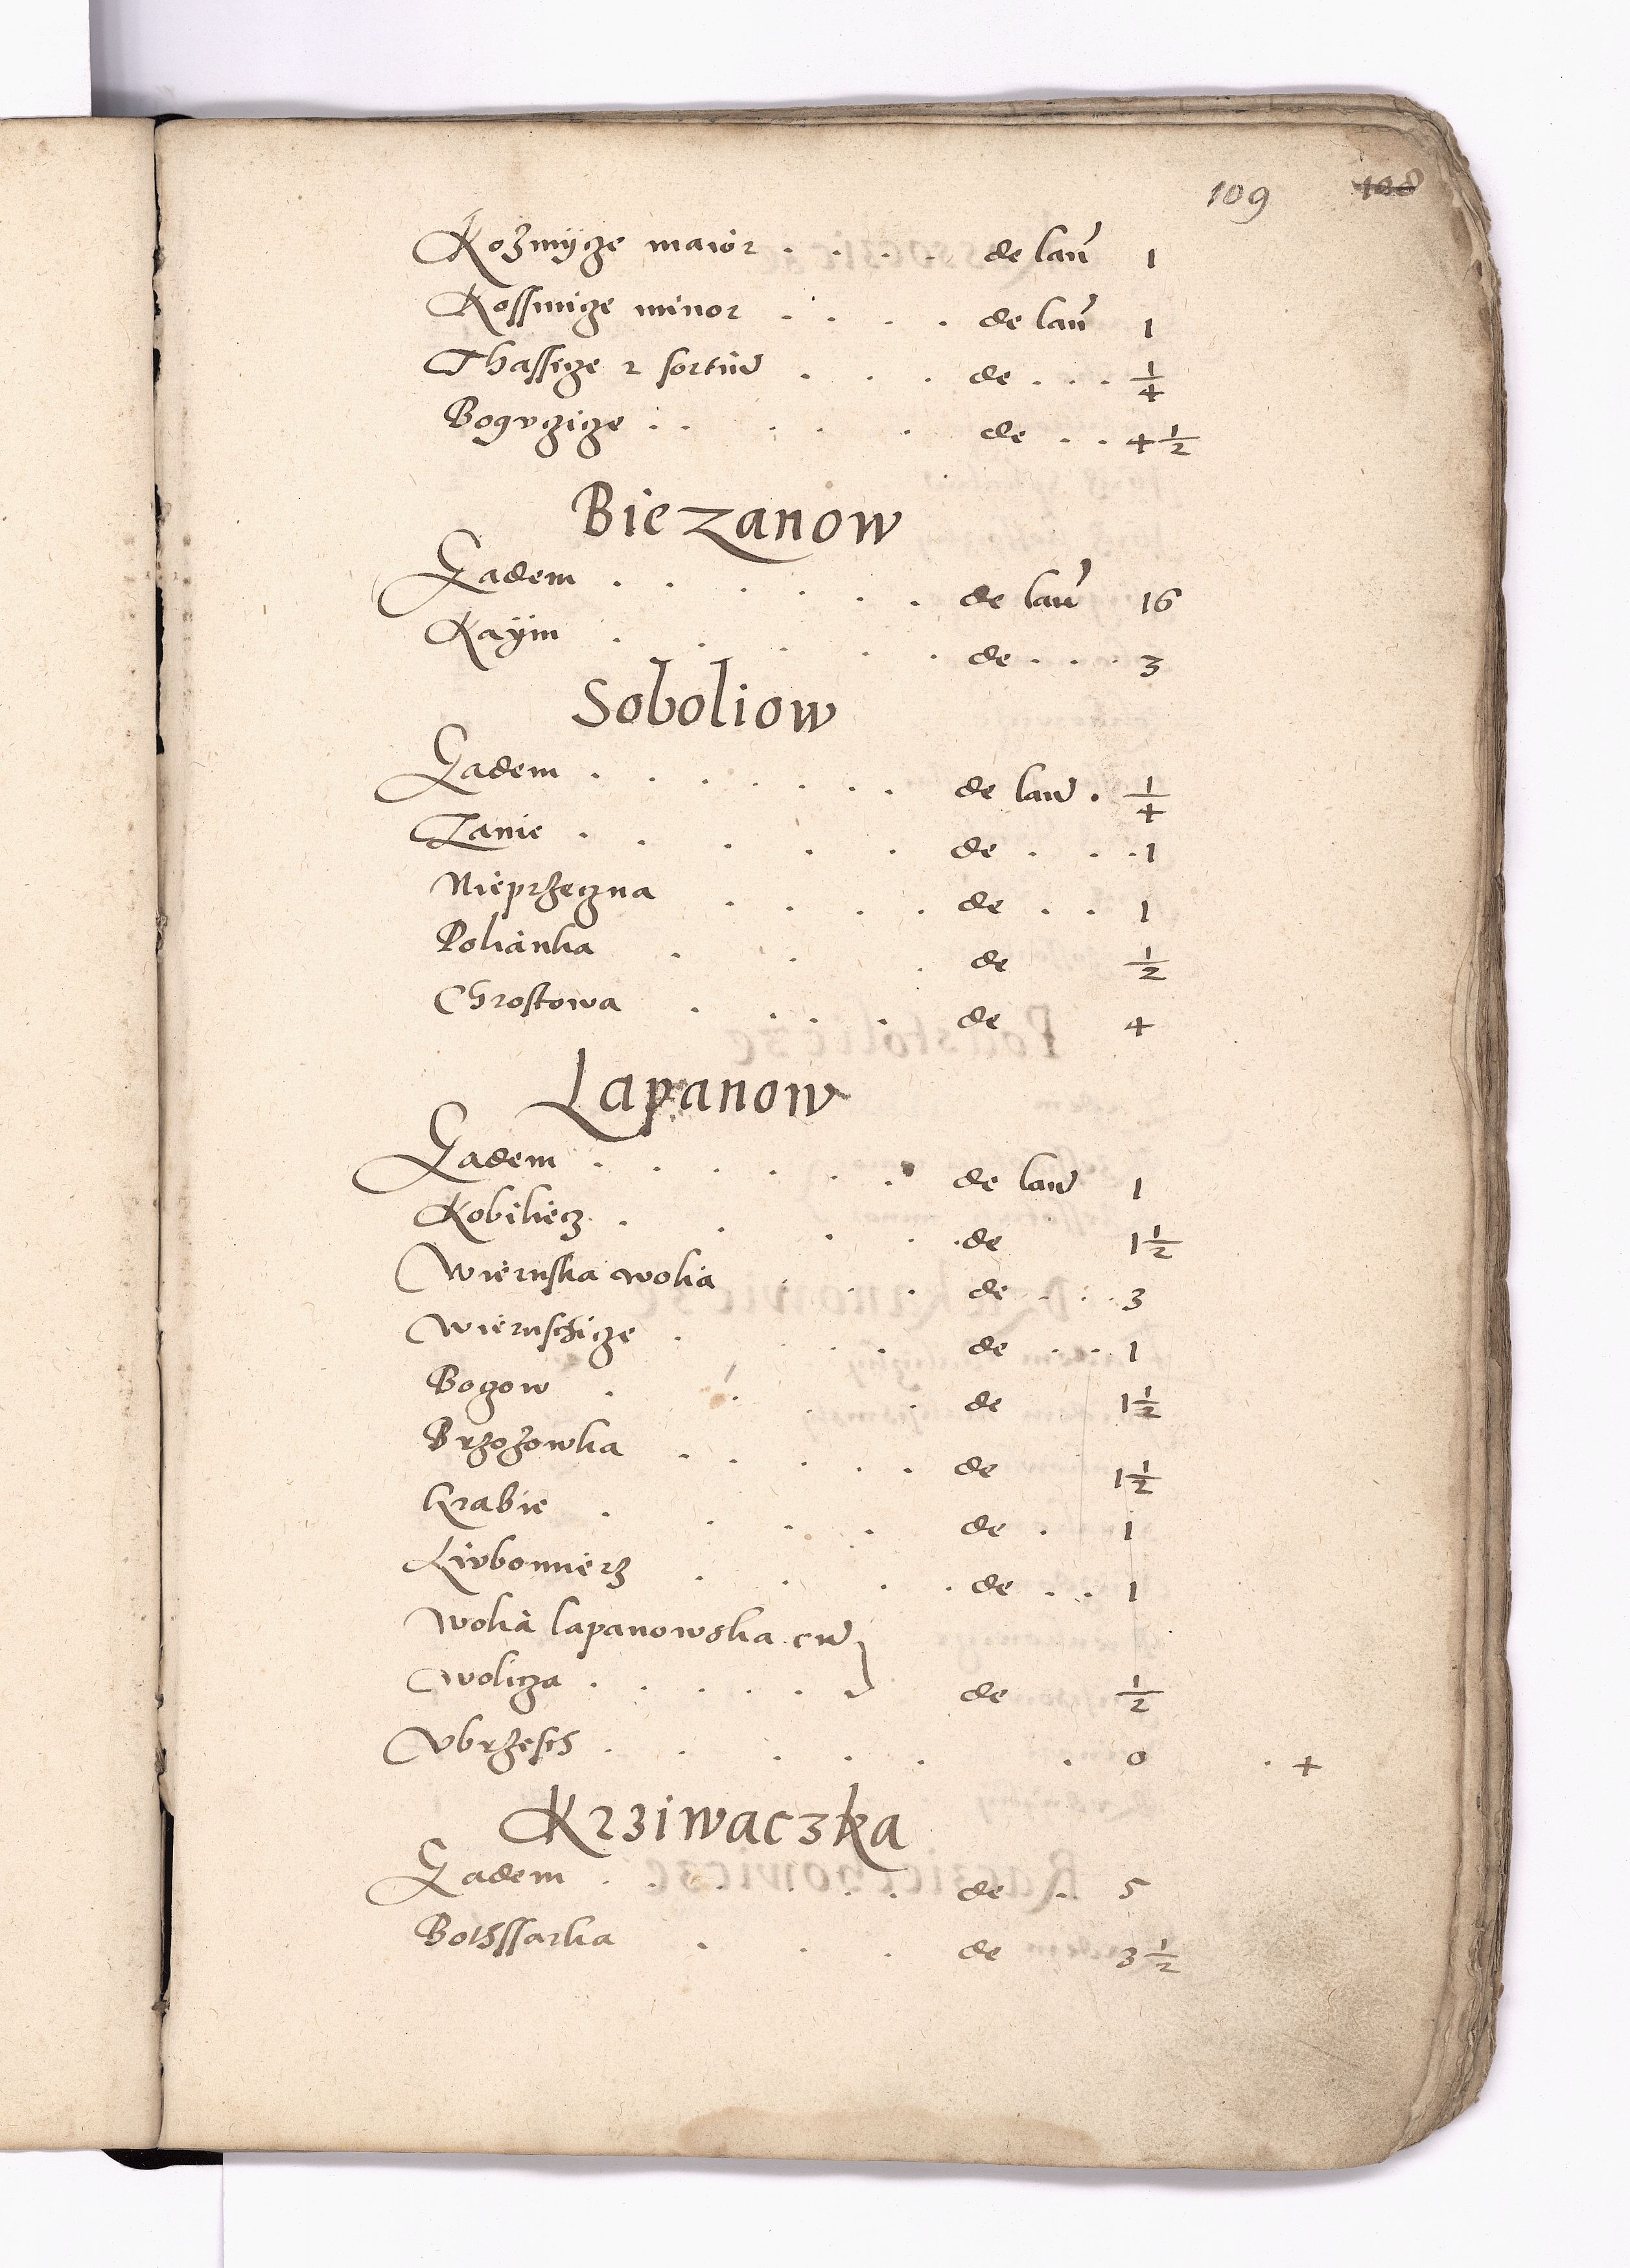 109 108
Kozmycze maior . . . . de lan 1
Kossmicze minor . . . . de lan 1
Thassicze 2 sortium . . . de . . . 1/4
Bogvczicze . . . . . de . . 4 1/2
Biezanow
Eadem . . . . . . de lan 16
Kaym . . . . . de . . . 3
Soboliow
Eadem . . . . . . de lan . 1/4
Zanie . . . . . de . . . 1
Nieprzeczna . . . . de . . 1
Polianka . . . de 1/2
Chrostowa . . . . de 4
Lapanow
Eadem . . . . . . de lan 1
Kobiliecz . . . . . de 1 1/2
Wiernska wolia . . . de . . . 3
Wiernschicze . . . de . . 1
Bogow . . . . de 1 1/2
Brzozowka . . . . . de 1 1/2
Krabie . . . . de . 1
Livbomierz . . . . de . . 1
Wolia lapanowska cum
Wolicza . . . . . de 1/2
Vbrzesch . . . . . . 0 . +
Krziwaczka
Eadem . . . . . . de . 5
Bothssarka . . . de 3 1/2